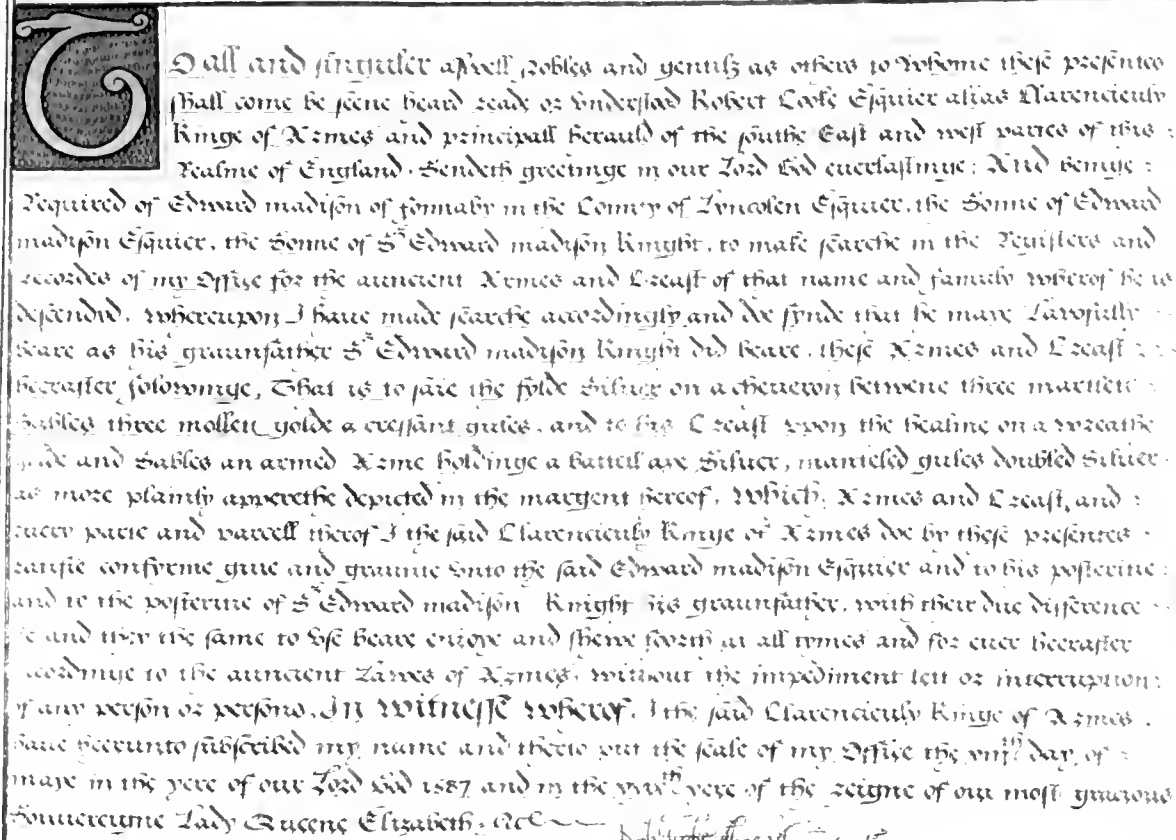 TO all and singuler aswell nobles and gentils as others to whome these presentes
shall come be seene heard reade or understad Robert Cooke Esquier alias Clarencieulx
Kinge of Armes and principall herauld of the southe East and west partes of this
Realme of England. Sendeth greetinge in our Lord God everlastinge: And beinge
Required of Edward madison of fonnaby in the County of Lyncolen Esquier, the Sonne of Edward
madison Esquier, the Sonne of Sr Edward madison Knight, to make searche in the Registers and
recordes of my Office for the auncient Armes and Creast of that name and famuly wherof he is
descendid. whereupon I have made searche accordingly and doe fynde that he maye Lawfully
beare as his graunfather Sr Edward madison Knight did beare, these Armes and Creast
heerafter folowinge, That is to saie the fylde Silver on a cheveron betwene three martlett
Sables three mollett golde a cressant gules, and to his Creast upon the healme on a wreathe
golde and Sables an armed Arme holdinge a battell axe Silver, manteled gules doubled Silver.
as more plainly apperethe depicted in the margent hereof. Which Armes and Creast, and
every parte and parcell therof I the said Clarencieulx Kinge of Armes doe by these presentes
ratifie conferme give and graunte unto the said Edward madison Esquier and to his posteritie
and to the posteritie of Sr Edward madison Knight his graunfather, with their due difference
he and they the same to use beare enjoye and shewe foorth at all tymes and for ever heerafter
accordinge to the auncient Lawes of Armes, without the impediment lett or interruption
of any person or persons. In witnesse wherof, I the said Clarencieulx Kinge of Armes.
have heerunto subscribed my name and therto put the seale of my Office the viijth day of
maye in the yere of our Lord God 1587 and in the yere of the reigne of our most gracious
Souvereigne Lady Queene Elizabeth. &c